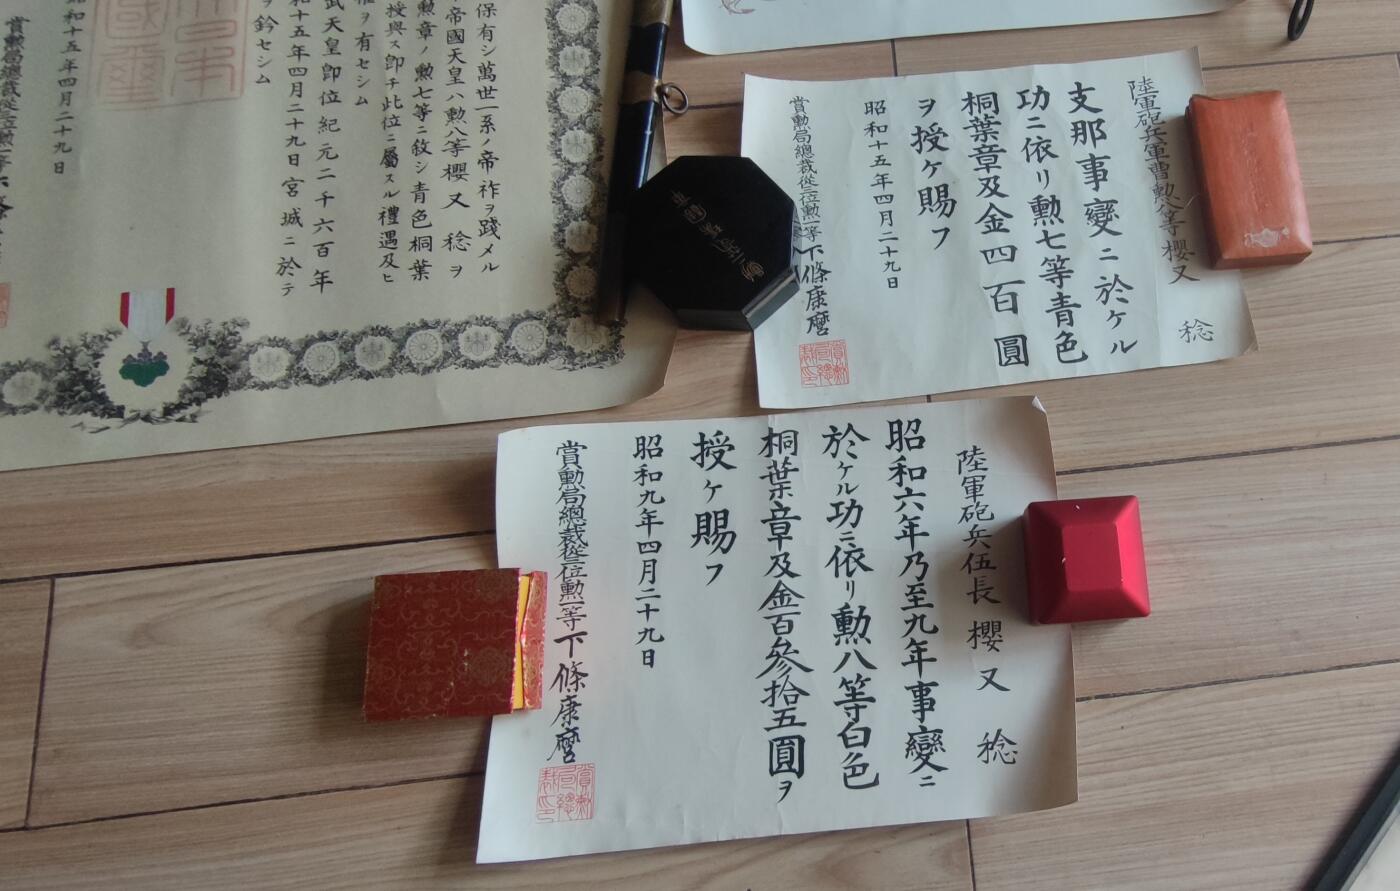 保有シ萬世一系ノ帝祚ヲ踐メル
帝國天皇ハ勲八等櫻又稔ヲ
勲章ノ勲七等ニ敘シ青色桐葉
授與ス卽チ此位ニ屬スル禮遇及ヒ
權ヲ有セシム
武天皇卽位紀元二千六百年
和十五年四月二十九日宮城ニ於テ
ヲ鈐セシム
昭和十五年四月二十九日
賞勲局總裁從三位勲一等
陸軍砲兵軍曹勲八等櫻又稔
支那事變ニ於ケル
功ニ依リ勲七等青色
桐葉章及金四百圓
ヲ授ケ賜フ
昭和十五年四月二十九日
賞勲局總裁從三位勲一等下條康麿
賞勲局總裁印
陸軍砲兵伍長櫻又稔
昭和六年乃至九年事變ニ
於ケル功ニ依リ勲八等白色
桐葉章及金百參拾五圓ヲ
授ケ賜フ
昭和九年四月二十九日
賞勲局總裁從三位勲一等下條康麿
賞勲局總裁印